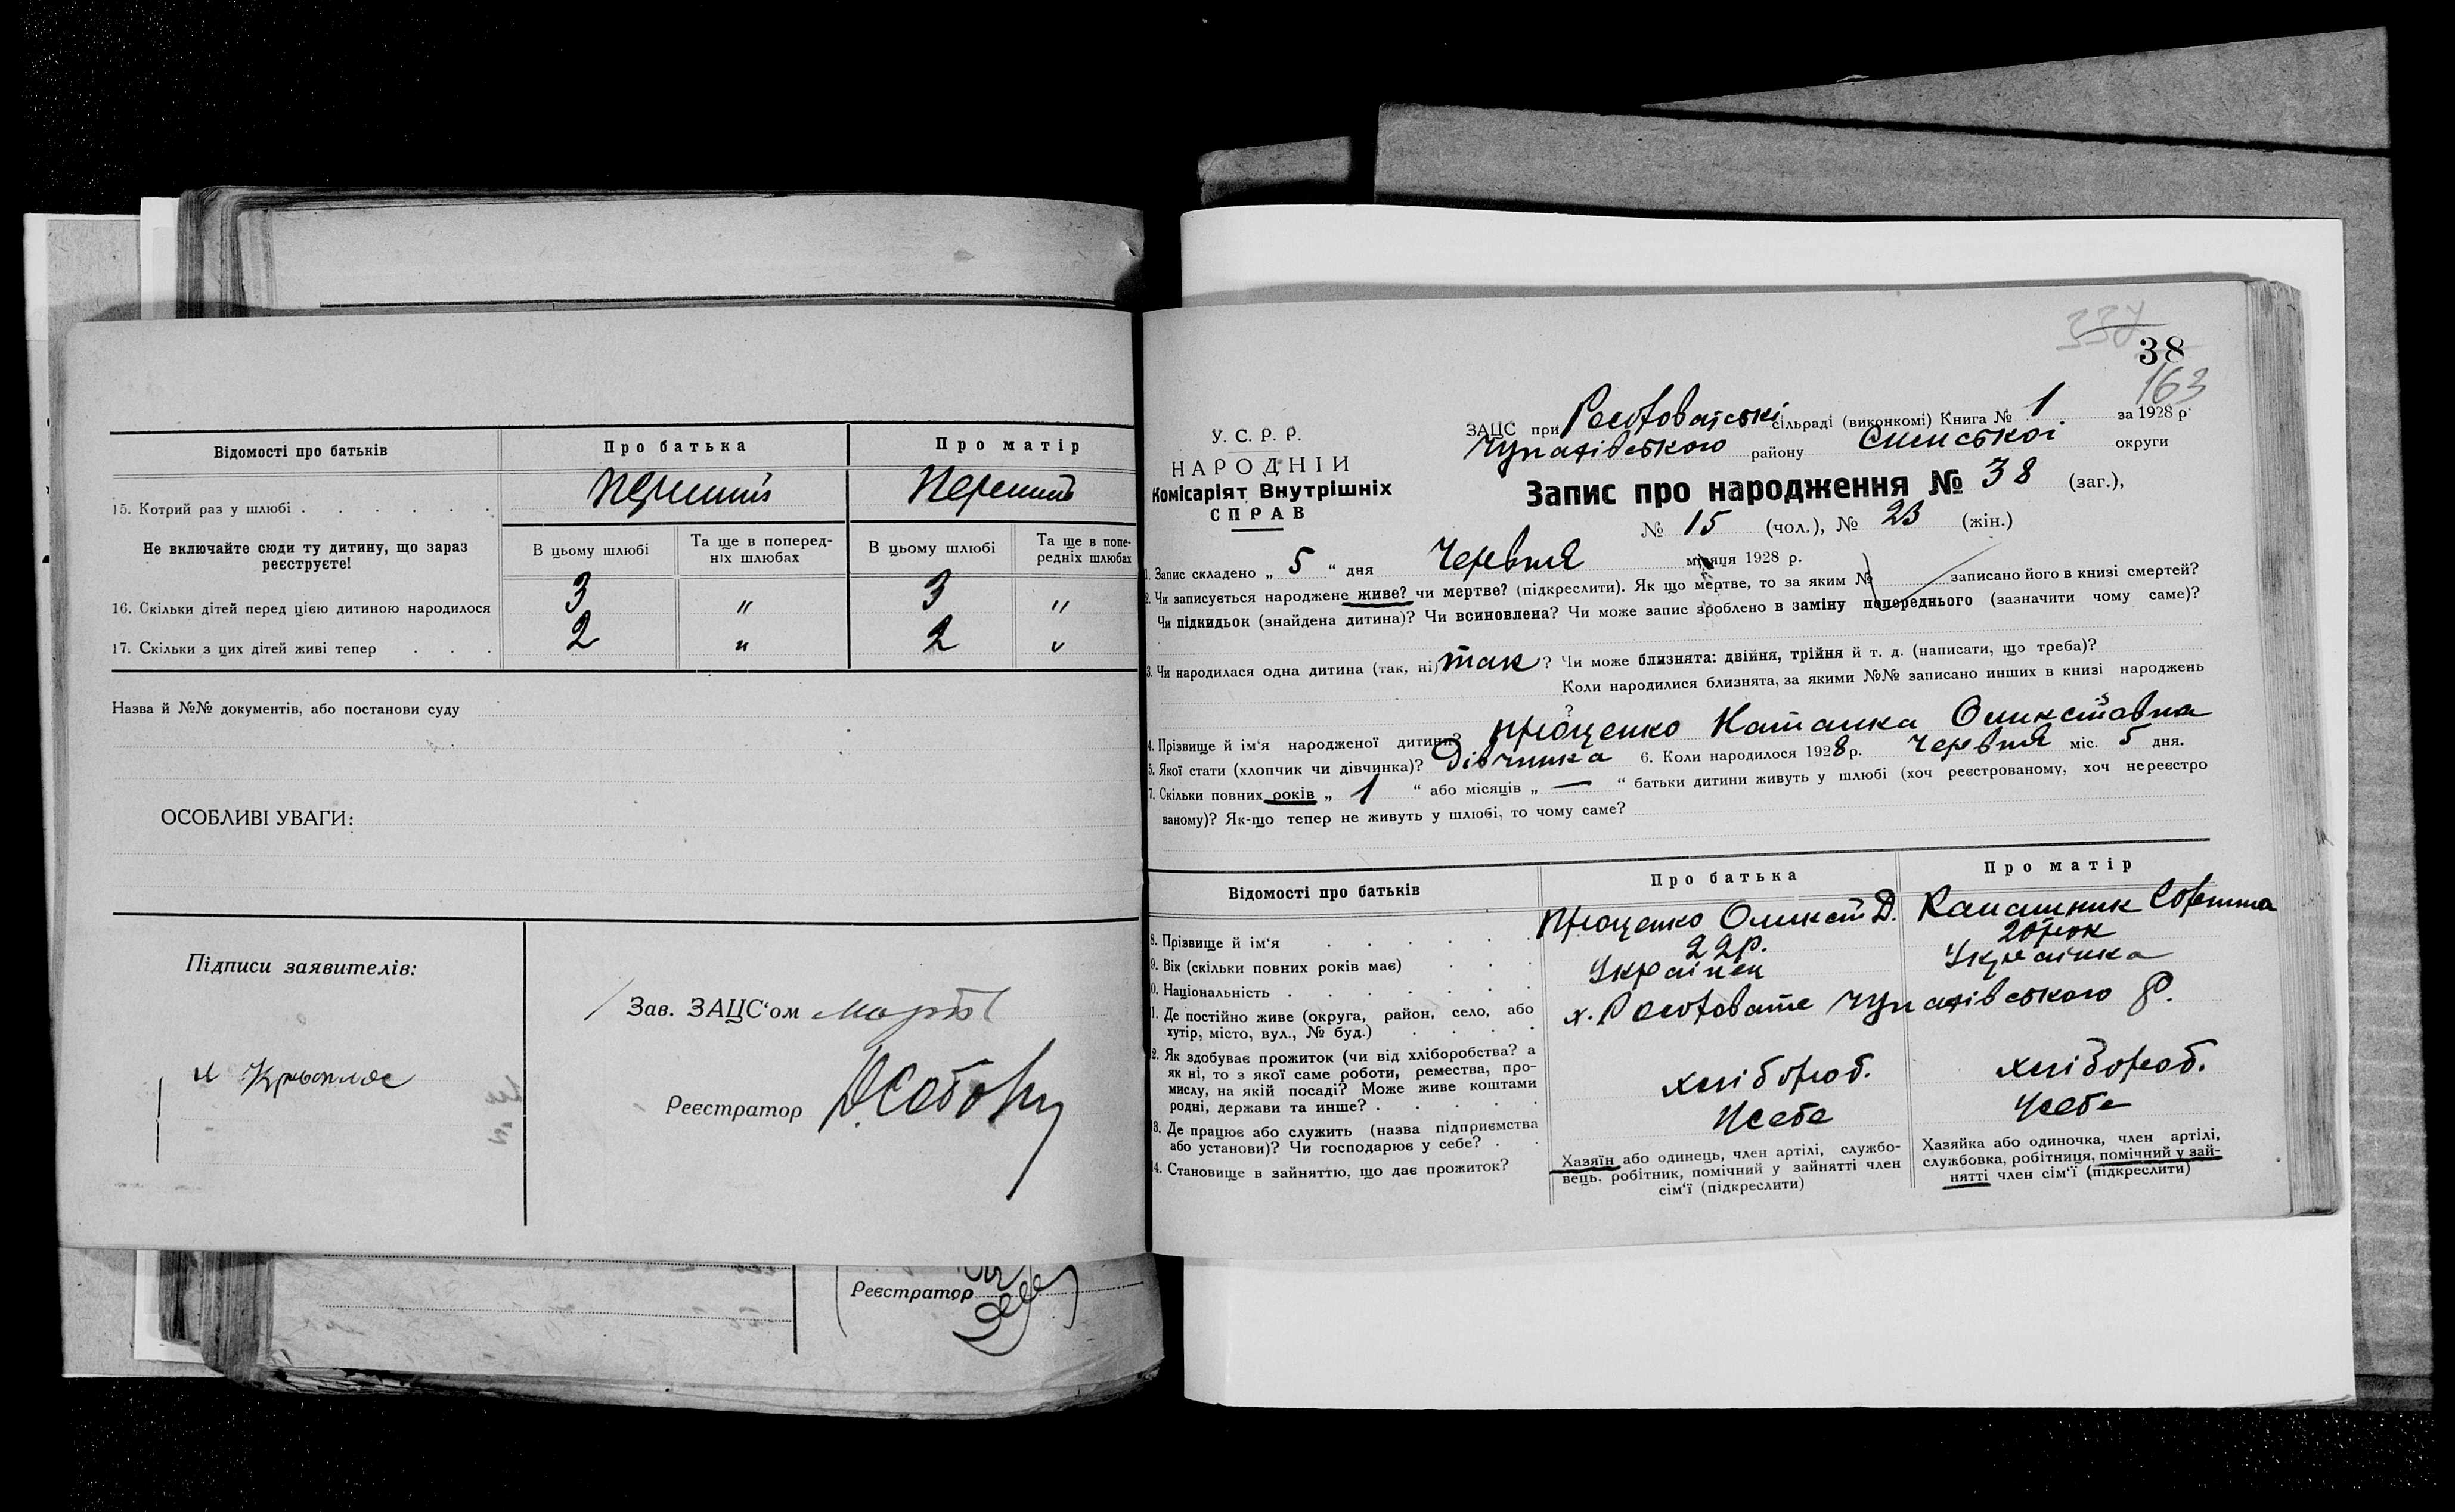 Відомості про батьків
Про батька
Про матір
15. Котрий раз у шлюбі . . . . . .
Перший
Перший
Не включайте сюди ту дитину, що зараз
реєструєте!
В цьому шлюбі
Та ще в поперед-
ніх шлюбах
В цьому шлюбі
Та ще в попе-
редніх шлюбах
16. Скільки дітей перед цією дитиною народилося
3 " 3 "
17. Скільки з цих дітей живі тепер . . .
2 " 2 "
Назва й №№ документів, або постанови суду
ОСОБЛИВІ УВАГИ:
Підписи заявителів:
Зав. ЗАЦС'ом
Реєстратор
Реєстратор
337
38
163
У. С. Р. Р.
НАРОДНІЙ
Комісаріят Внутрішніх
СПРАВ
ЗАЦС при сільраді (виконкомі) Книга № 1 за 1928 р.
району округи
Запис про народження № 38 (заг.),
№ 15 (чол.), № 23 (жін.)
1. Запис складено „ 5 " дня Червня місяця 1928 р.
2. Чи записується народжене живе? чи мертве? (підкреслити). Як що мертве, то за яким № записано його в книзі смертей?
Чи підкидьок (знайдена дитина)? Чи всиновлена? Чи може запис зроблено в заміну попереднього (зазначити чому саме)?
3. Чи народилася одна дитина (так, ні) так ? Чи може близнята: двійня, трійня й т. д. (написати, що треба)?
Коли народилися близнята, за якими №№ записано инших в книзі народжень
?
4. Прізвище й ім'я народженої дитини? Проценко
5. Якої стати (хлопчик чи дівчинка)? Дівчинка 6. Коли народилося 1928 р. Червня міс. 5 дня.
7. Скільки повних років „ 1 " або місяців „ — " батьки дитини живуть у шлюбі (хоч реєстрованому, хоч нереєстро
ваному)? Як-що тепер не живуть у шлюбі, то чому саме?
Відомості про батьків
Про батька
Про матір
8. Прізвище й ім'я . . . . . .
Проценко Д.
9. Вік (скільки повних років має) . . .
22 р.
20 рок
10. Національність . . . . . . .
Українец
Українка
11. Де постійно живе (округа, район, село, або
хутір, місто, вул., № буд.) . . . .
х. р.
12. Як здобуває прожиток (чи від хліборобства? а
як ні, то з якої саме роботи, ремества, про-
мислу, на якій посаді? Може живе коштами
родні, держави та инше? . . . . .
хлібороб.
хлібороб.
13. Де працює або служить (назва підприємства
або установи)? Чи господарює у себе? . .
Усебе
Усебе
14. Становище в зайняттю, що дає прожиток?
Хазяїн або одинець, член артілі, службо-
вець, робітник, помічний у зайнятті член
сім'ї (підкреслити)
Хазяйка або одиночка, член артілі,
службовка, робітниця, помічний у зай-
нятті член сім'ї (підкреслити)